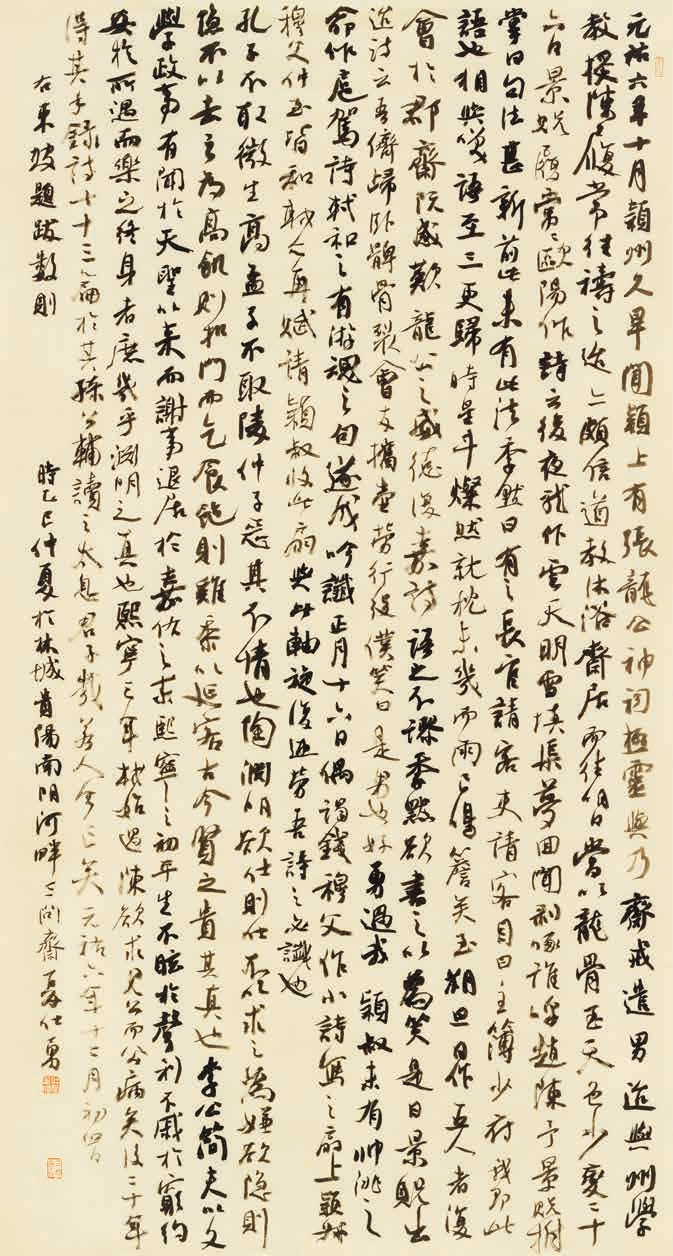 元祐六年十月潁州久旱聞潁上有張龍公神祠極靈異乃齋戒遣男迨與州學
教授陳履常往禱之迨亦頗信道教沐浴齋居而往明日當以龍骨至天色少變二十
六日景貺履常二歐陽作詩云後夜龍作雲天明雪填渠夢回聞剝啄誰呼趙陳予景貺拊
掌曰句法甚新前此未有此法季默曰有之長官請客吏請客目曰主簿少府我即此
語也相與笑語至三更歸時星斗燦然就枕未幾而雨已鳴簷矣至朔旦日作五人者復
會於郡齋既感歎龍公之威德復嘉詩語之不謬季默欲書之以為笑是日景貺出
迨詩云吾儕歸臥髀骨裂會友攜壺勞行役僕笑曰是男也好勇過我潁叔未有帥洮之
命作扈駕詩軾和之有游魂之句遂成吟讖正月十六日偶謁錢穆父作小詩寫之扇上潁叔
穆父仲至皆和軾亦再賦請潁叔收此扇與此軸旋復迎勞吾詩之必讖也
孔子不取微生高孟子不取陵仲子惡其不情也陶淵明欲仕則仕不以求之為嫌欲隱則
隱不以去之為高飢則扣門而乞食飽則雞黍以延客古今賢之貴其真也李公簡夫以文
學政事有聞於天聖以來而謝事退居於嘉祐之末熙寧之初平生不眩於聲利不戚於窮約
安於所遇而樂之終身者庶幾乎淵明之真也熙寧三年軾始過陳欲求見公而公病矣後二十年
得其手錄詩七十三篇於其孫公輔讀之太息君子哉若人今亡矣元祐六年十二月初四日
右東坡題跋數則
時乙巳仲夏於林城貴陽南明河畔三問齋 仕勇